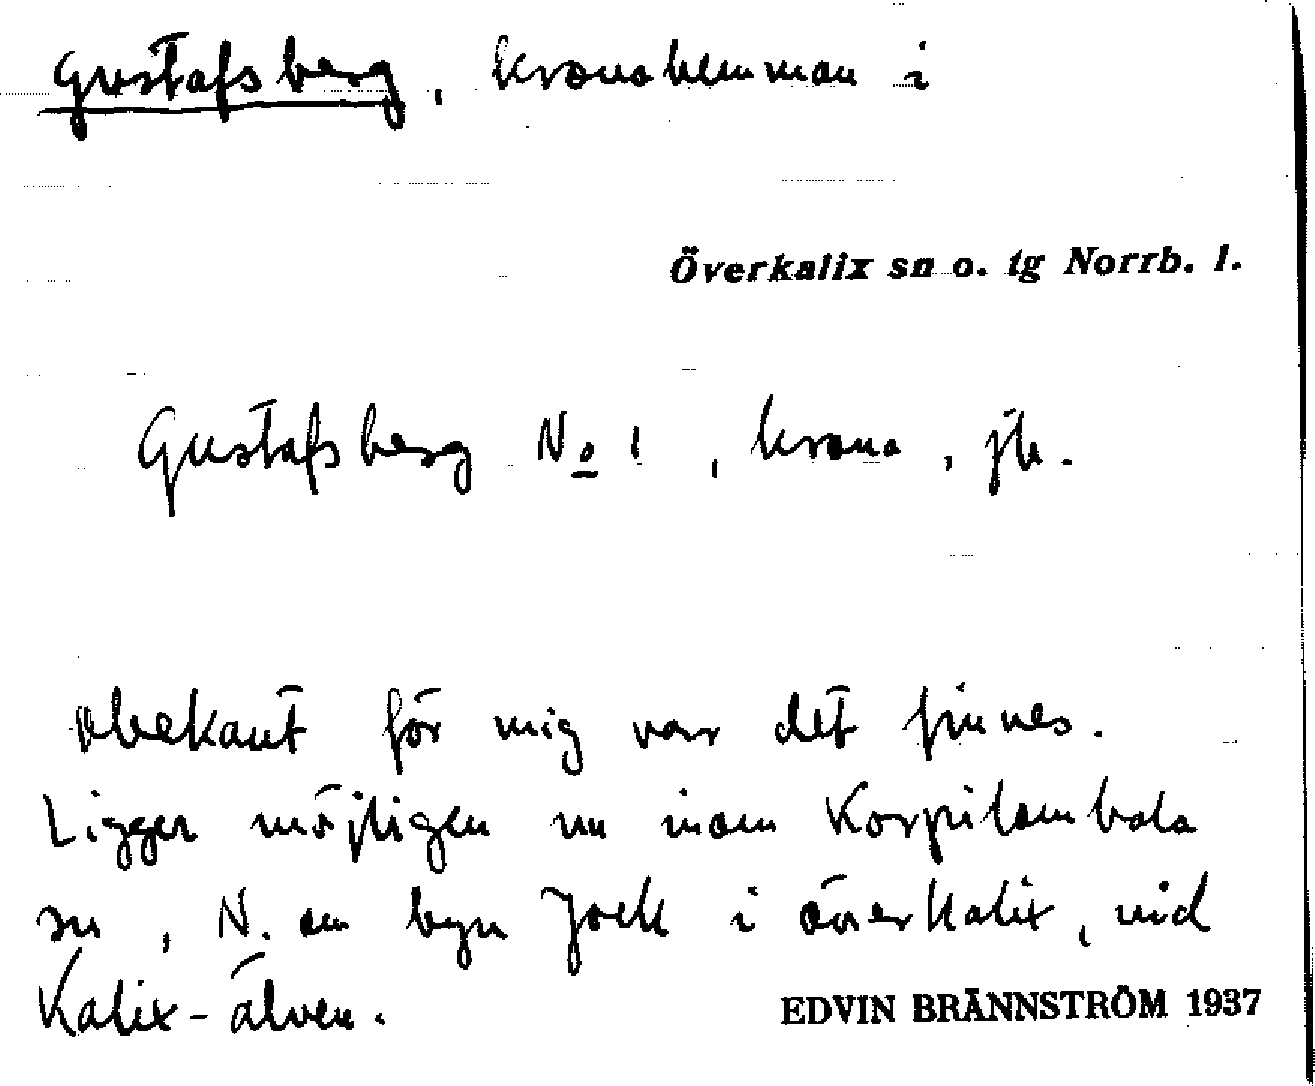 Gustafsberg, kronohemman i
Överkalix sn o. tg Norrb. l.
Gustafsberg No 1, krono, jb.
Obekant för mig var det finnes.
Ligger möjligen nu inom Korpilombolo
sn, N. om byn Jock i överkalix, vid
Kalix-älven.
EDVIN BRÄNNSTRÖM 1937